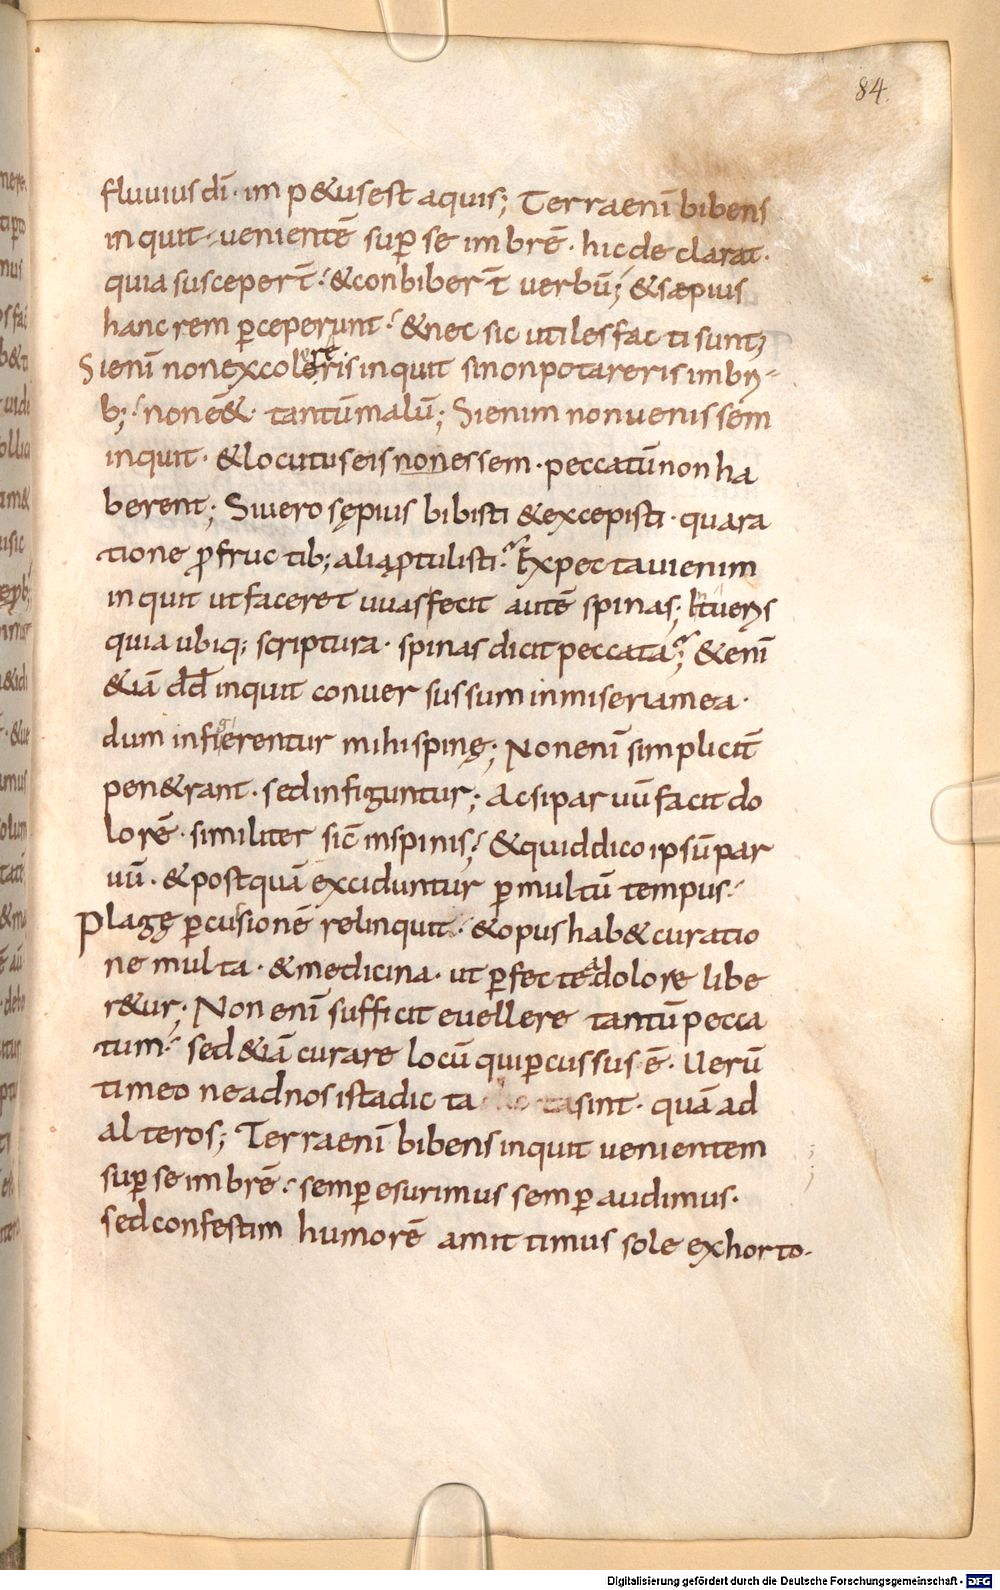 84
fluuius dī· im p&us est aquis; Terra enī bibens
inquit· uenientē sup̄ se imbrē· hic declarat·
quia susceper̄t:· &conbiber̄t uerbū; &sæpius
hanc rem p̄ceperunt:· &nec sic utiles facti sunt;
Si enī non excolereris inquit si non potareris imbri
b;:· non ēē& tantū malū; Si enim non uenissem
inquit· &locutus eis non essem· peccatū non ha
berent; Si uero sępius bibisti &excepisti· qua ra
tione p̄ fructib; alia ptulisti:· Expectaui enim
inquit ut faceret uuas fecit autē spinas;
quia ubiq; scriptura· spinas dicit peccata; &enī
&iā dd̄ inquit conuersus sum in miseria mea·
dum infigerentur mihi spinę; Non enī simplicit̄
pen&rant· sed infiguntur; Ac si paruū facit do
lorē· similiter sic̄ in spinis; &quid dico ipsū par
uū· &postquā exciduntur p̄ multū tempus:·
Plagę p̄cusionē relinquit:· &opus hab& curatio
ne multa· &medicina· ut p̄fecte a dolore libe
r&ur; Non enī sufficit euellere tantū pecca
tum:· sed &iā curare locū qui p̄cussus ē· Uerū
timeo ne ad nos ista dicta sint· quā ad
alteros; Terra enī bibens inquit uenientem
sup̄ se imbrē:· semp̄ esurimus semp̄ audimus·
sed confestim humorē amittimus sole exhorto·
Digitalisierung gefördert durch die Deutsche Forschungsgemeinschaft - DFG